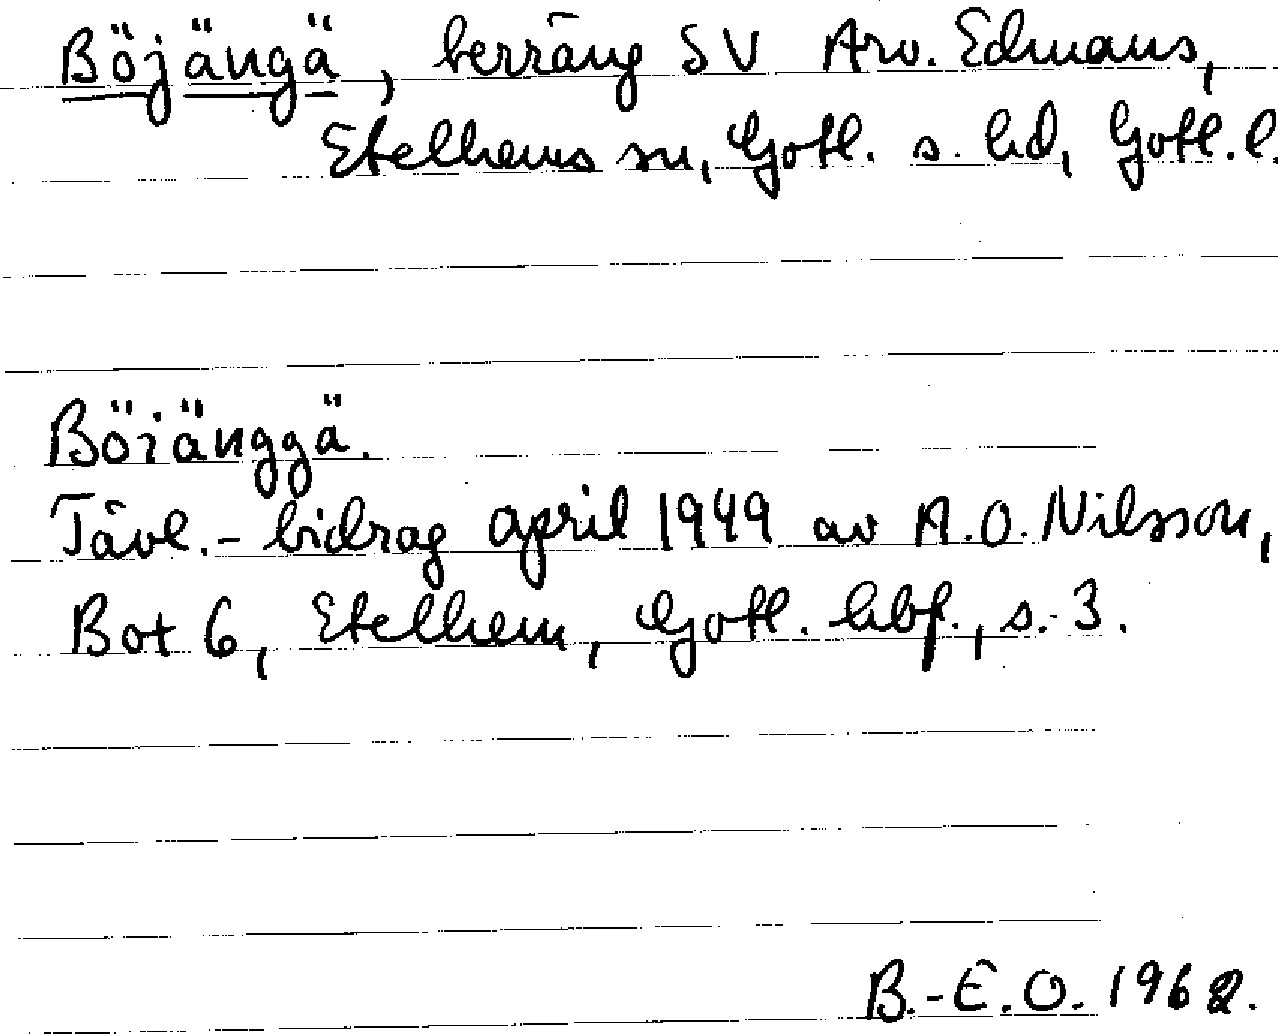 Böjängä, berräng SV Arv. Edmans,
Etelhems sn, Gotl. s. hd, Gotl. l.
Böiänggä.
Tävl.-bidrag april 1949 av A.O. Nilsson,
Bot 6, Etelhem, Gotl. hbf., s. 3.
B.-E.O. 1962.